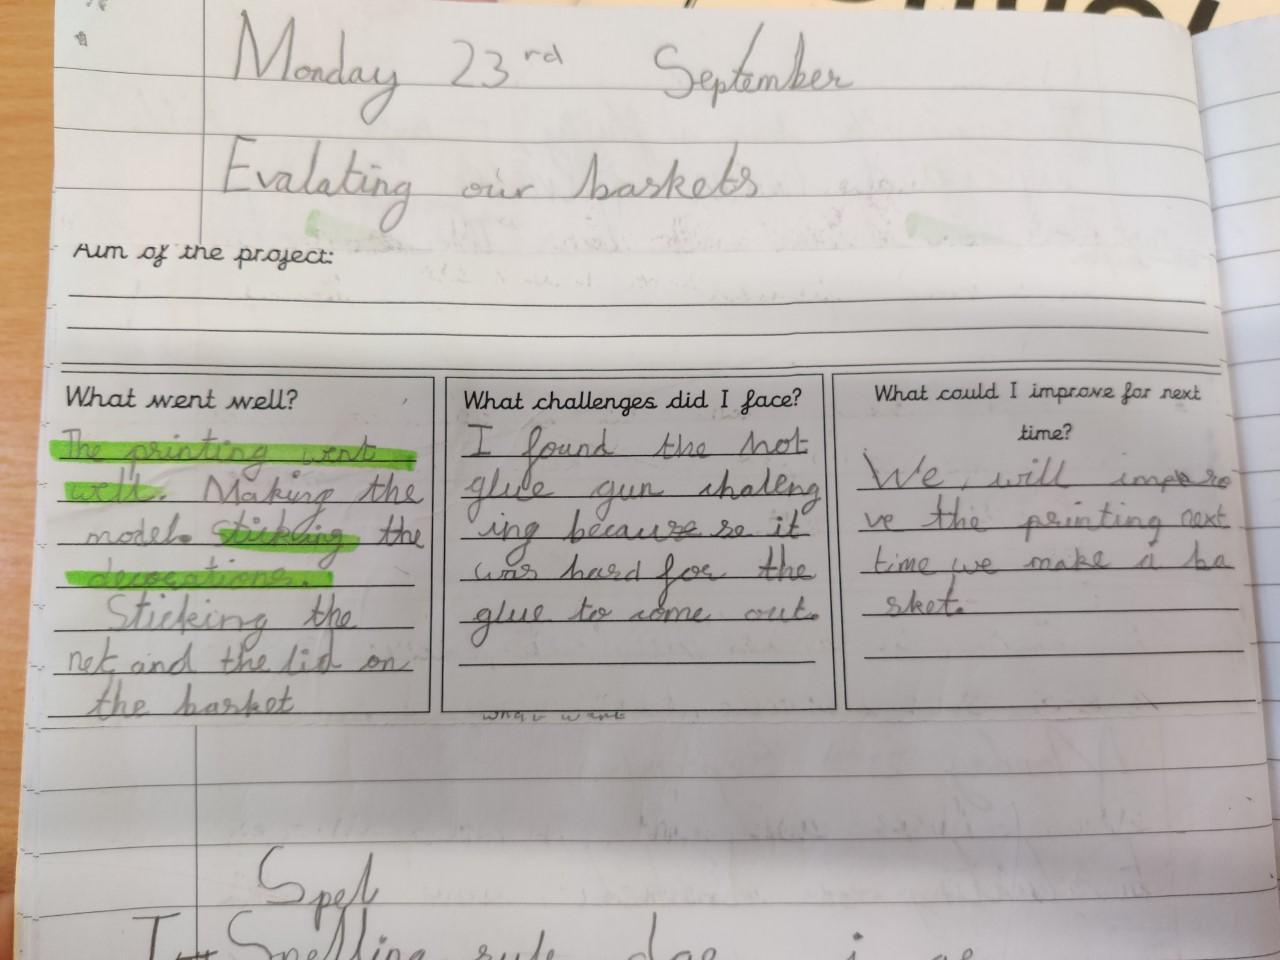 Monday 23rd September
Evalating our baskets
Aim of the project:
What went well?
The printing went
well. Making the
model. sticking the
decorations.
Sticking the
net and the lid on
the basket
What challenges did I face?
I found the hot
glue gun chaleng
ing because se it
was hard for the
glue to come out.
What could I improve for next
time?
We will impro
ve the printing next
time we make a ba
sket.
Spel
Spelling rule